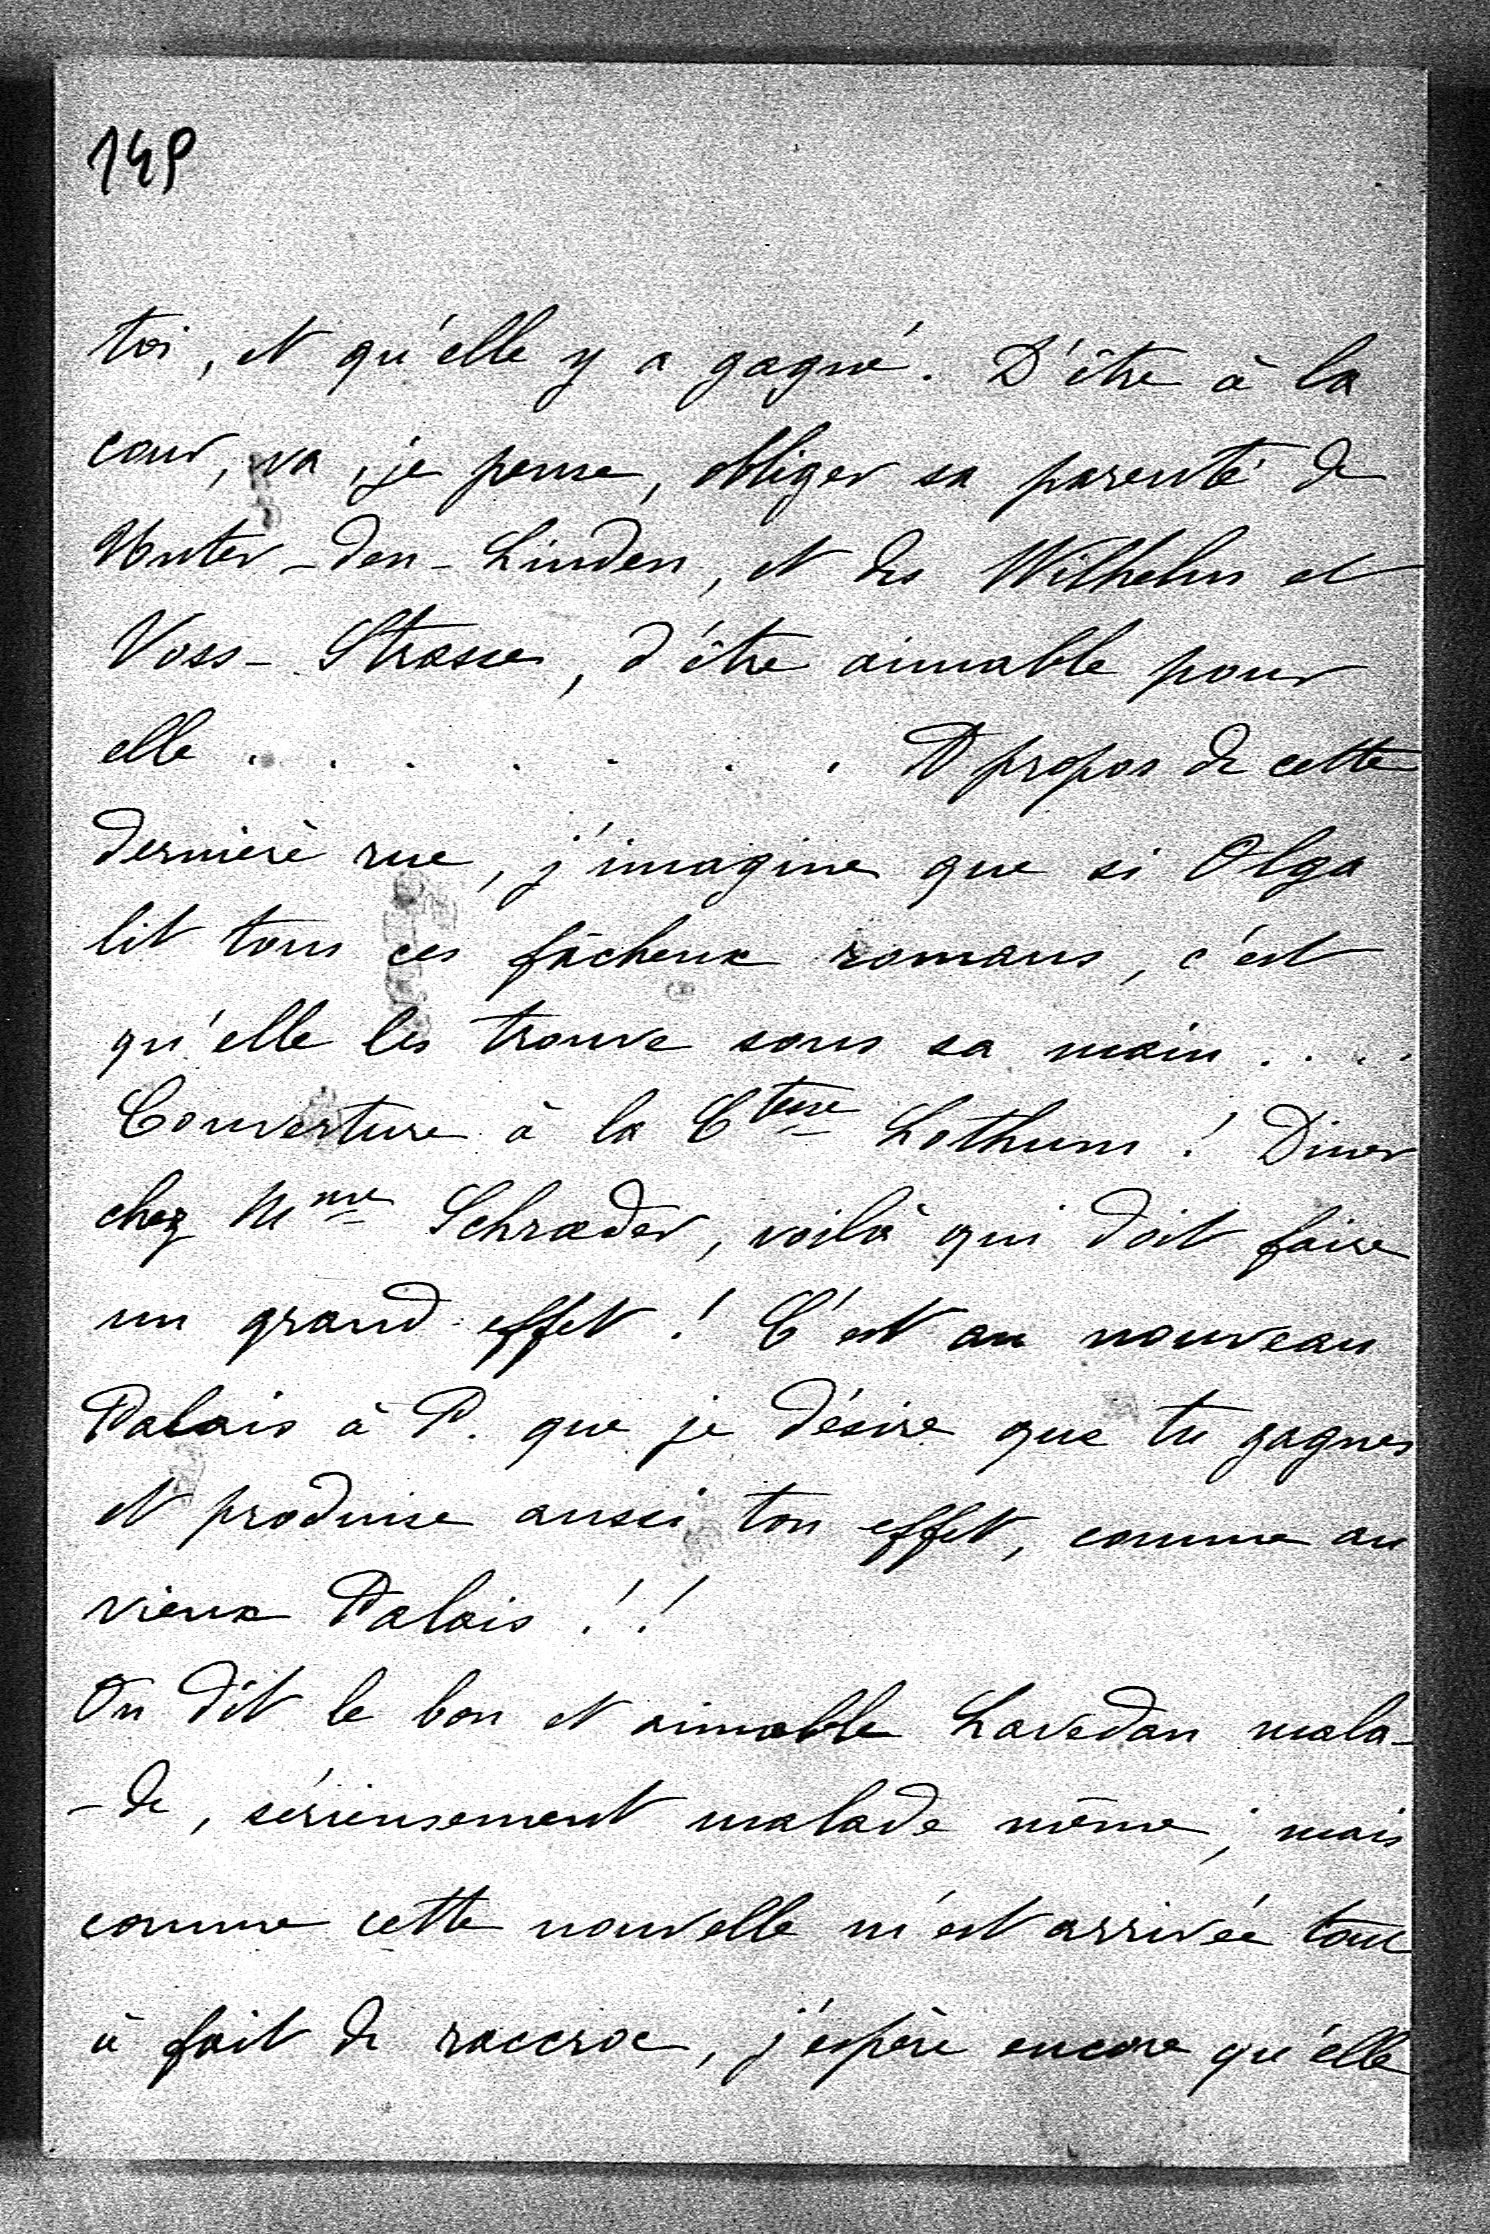 149
toi, et qu'elle y a gagné. D'être à la
cour, va, je pense, obliger sa parenté de
Unter-den-Linden, et des Wilhelm et
Voss-Strasse, d'être aimable pour
elle . . . . . . . A propos de cette
dernière rue, j'imagine que si Olga
lit tous ces fâcheux romans, c'est
qu'elle les trouve sous sa main . . . .
Couverture à la Ctesse Lothum ! Diner
chez Mme Schrader, voilà qui doit faire
un grand effet ! C'est au nouveau
Palais à P. que je désire que tu gagnes
et produise aussi ton effet, comme au
vieux Palais ! !
On dit le bon et aimable Lavedan mala-
-de, sérieusement malade même ; mais
comme cette nouvelle m'est arrivée tout
à fait de raccroc, j'espère encore qu'elle